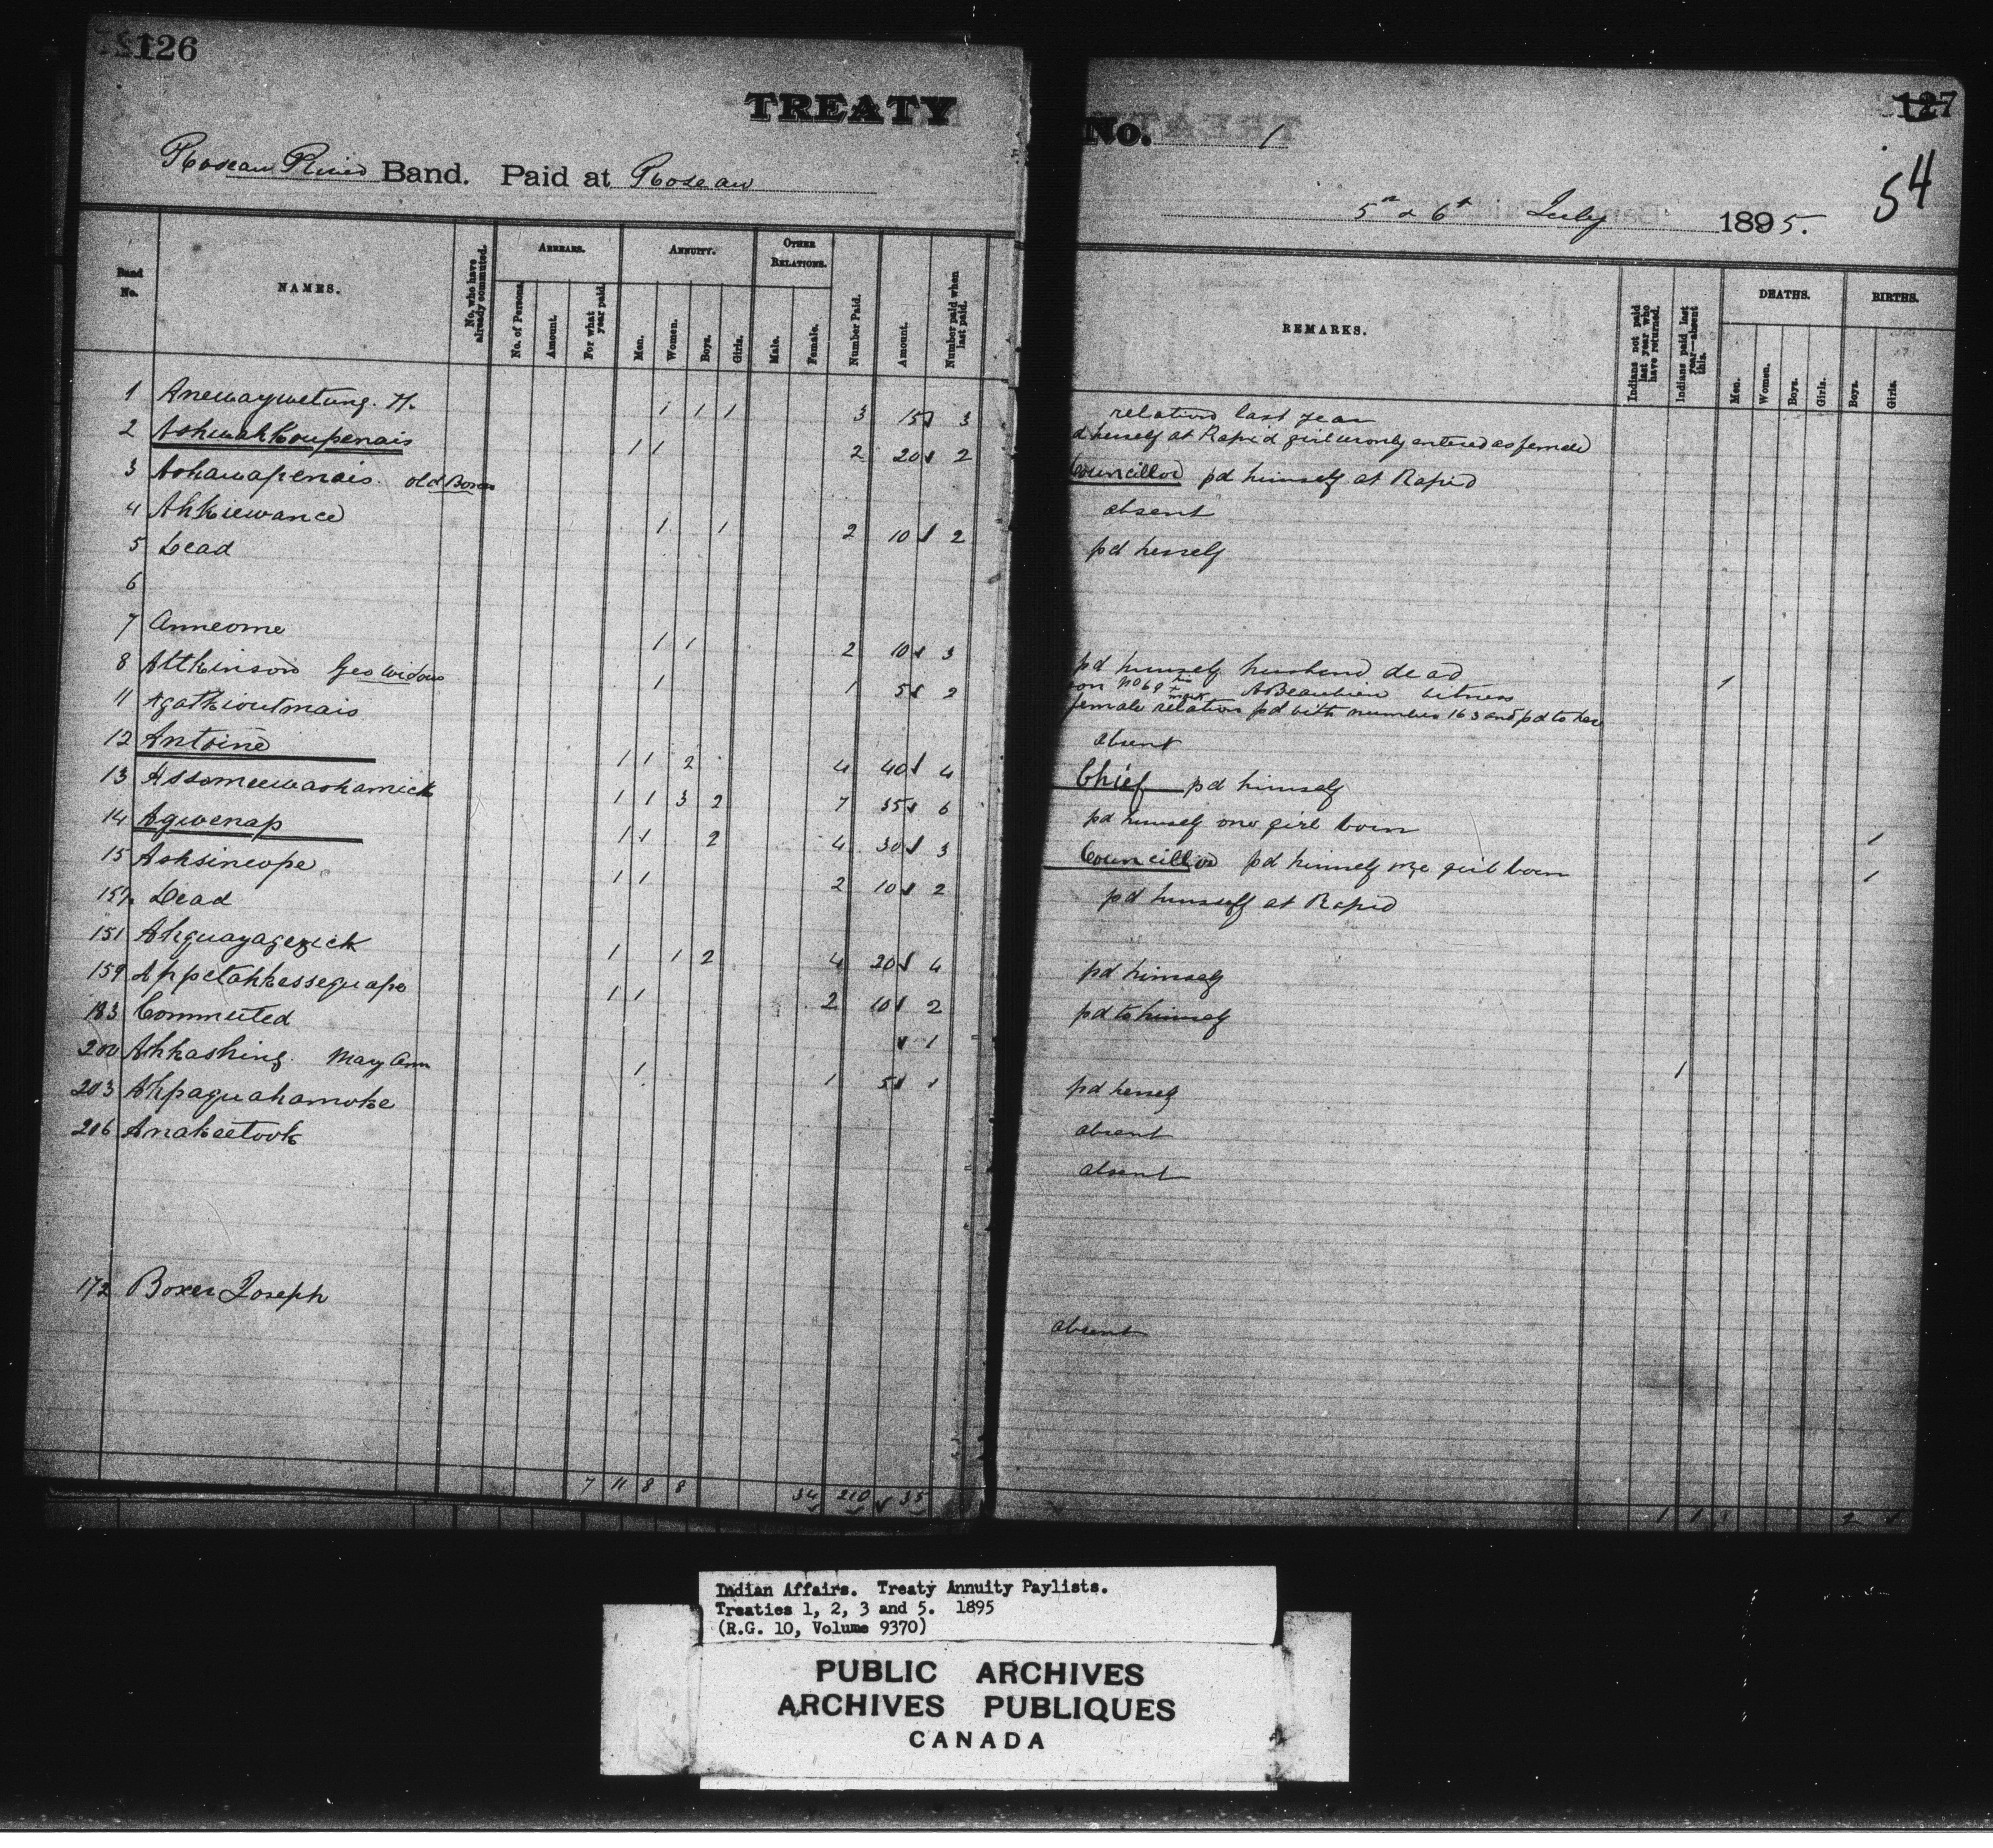 126
TREATY
Roseau River Band. Paid at Roseau
Band No.
NAMES.
No. who have already commuted.
ARREARS.
No. of Persons.
Amount.
For what year paid.
ANNUITY.
Men.
Women.
Boys.
Girls.
OTHER RELATIONS.
Male.
Female.
Number Paid.
Amount.
Number paid when last paid.
1 Anewaywetung. H. 1 1 1 3 15 3
2 Ashwahkoupenais 1 1 2 20 2
3 Ashawapenais. old Boxer
4 Ahkiewance 1 1 2 10 2
5 Dead
6
7 Anneome 1 1 2 10 3
8 Attkinson Geo Widow 1 1 5 2
11 Agatkioutmais
12 Antoine 1 1 2 4 40 4
13 Assomeewashamick 1 1 3 2 7 35 6
14 Agwenap 1 1 2 4 30 3
15 Ashsineope 1 1 2 10 2
157 Dead
151 Ahguayagezick 1 1 2 4 20 4
159 Appetahkessequape 1 1 2 10 2
183 Commuted 1
200 Ahhashing Mary Ann 1 1 5 1
203 Ahpaguahamoke
206 Anakeetook
172 Boxer Joseph
7 11 8 8 34 210 35
127
54
No. 1
5th & 6t July 1895.
REMARKS.
Indians not paid last year who have returned.
Indians paid last year—absent this.
DEATHS.
Men.
Women.
Boys.
Girls.
BIRTHS.
Boys.
Girls.
relation last year
d herself at Rapid girl wrongly entered as female
Councillor pd himself at Rapid
absent
pd herself
pd himself husband dead 1
on No 69 his + mark A Beaubien witness
female relation pd with number 163 and pd to her
absent
Chief pd himself
pd himself one girl born 1
Councillor pd himself one girl born 1
pd himself at Rapid
pd himself
pd to himself
1
pd herself
absent
absent
absent
1 1 1 2
Indian Affairs. Treaty Annuity Paylists.
Treaties 1, 2, 3 and 5. 1895
(R.G. 10, Volume 9370)
PUBLIC ARCHIVES
ARCHIVES PUBLIQUES
CANADA